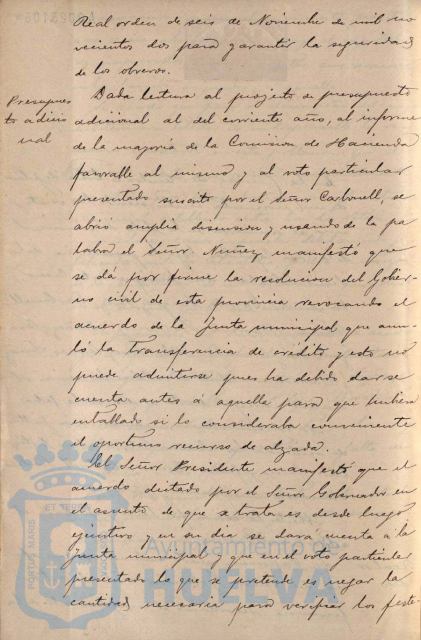 Real orden de seis de Noviembre de mil no
vecientos dos para garantir la seguridad
de los obreros.
Presupues
to adicio
nal
Dada lectura al projecto de presupuesto
adicional al del corriente año, al informe
de la mayoria de la Comision de Hacienda
favorable al mismo y al voto particular
presentado suscrito por el Señor Carbonell, se
abrió amplia discusion y usando de la pa
labra el Señor Nuñez manifestó que
se dá por firme la resolucion del Gober-
no civil de esta provincia revocando el
acuerdo de la Junta municipal que anu-
ló la transferencia de crédito y esto no
puede admitirse pues ha debido darse
cuenta antes á aquella para que hubiera
entablado si lo consideraba conveniente
el oportuno recurso de alzada.
El Señor Presidente manifestó que el
acuerdo dictado por el Señor Gobernador en
el asunto de que se trata es desde luego
ejecutivo y en su dia se dará cuenta á la
Junta municipal y que en el voto particular
presentado lo que se pretende es negar la
cantidad necesaria para verificar los feste-
PORTUS MARIS
ET
Ayuntamiento de
HUELVA